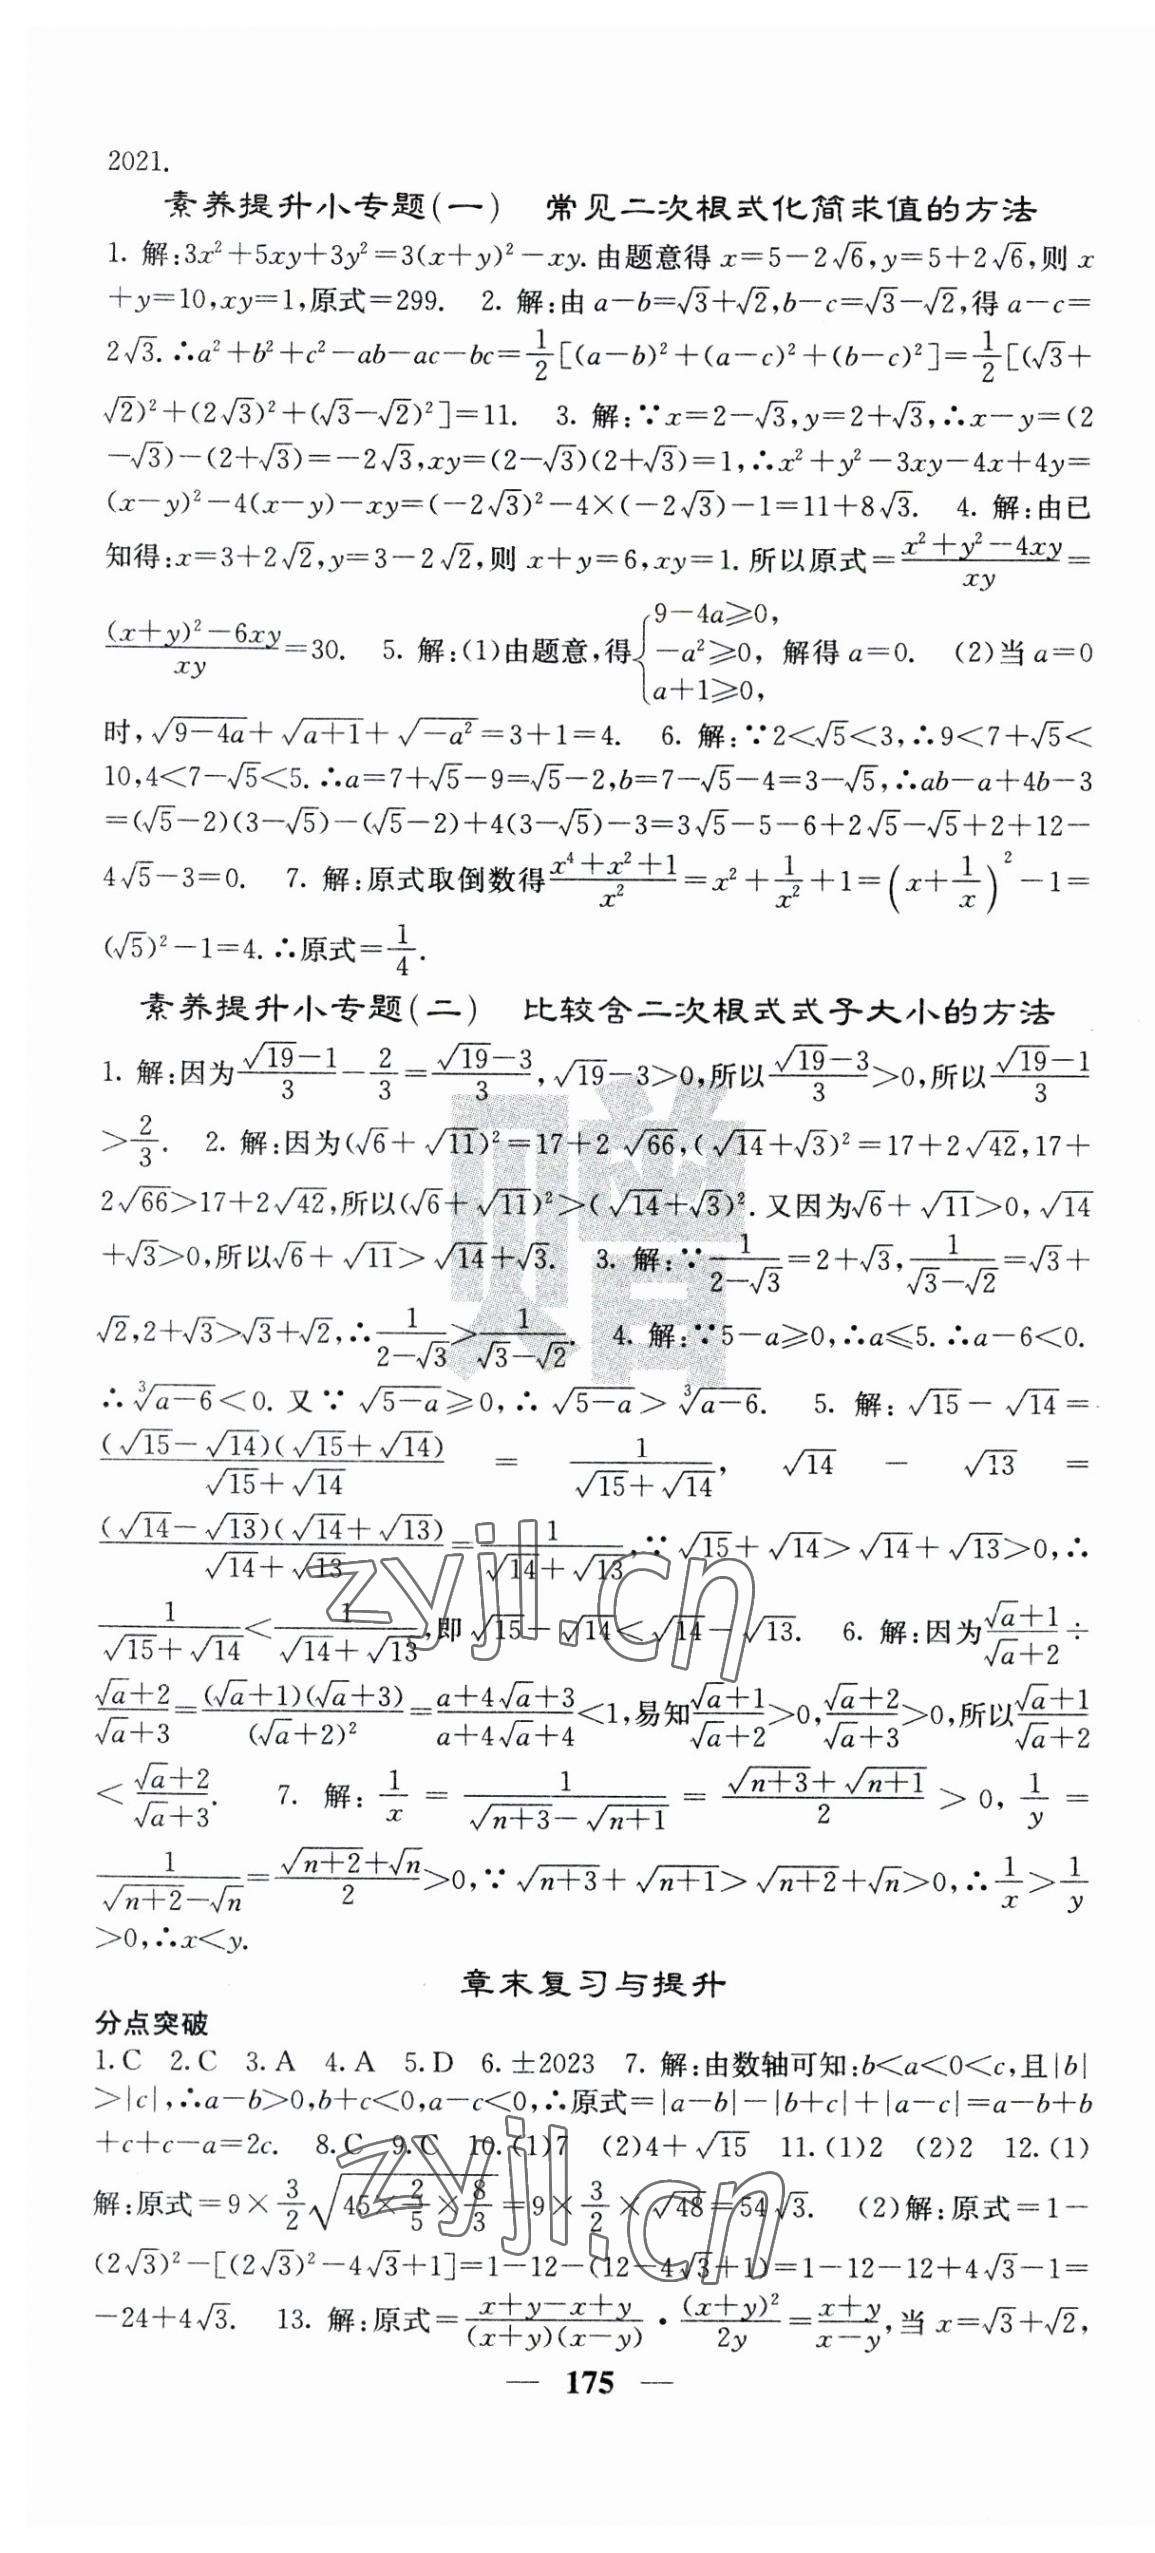 2021.
素养提升小专题(一) 常见二次根式化简求值的方法
1. 解:3x²+5xy+3y²=3(x+y)²-xy. 由题意得 x=5-2√6,y=5+2√6,则 x
+y=10,xy=1,原式=299. 2. 解:由 a-b=√3+√2,b-c=√3-√2,得 a-c=
2√3. ∴a²+b²+c²-ab-ac-bc=1/2[(a-b)²+(a-c)²+(b-c)²]=1/2[(√3+
√2)²+(2√3)²+(√3-√2)²]=11. 3. 解:∵x=2-√3,y=2+√3,∴x-y=(2
-√3)-(2+√3)=-2√3,xy=(2-√3)(2+√3)=1,∴x²+y²-3xy-4x+4y=
(x-y)²-4(x-y)-xy=(-2√3)²-4×(-2√3)-1=11+8√3. 4. 解:由已
知得:x=3+2√2,y=3-2√2,则 x+y=6,xy=1. 所以原式=(x²+y²-4xy)/xy=
((x+y)²-6xy)/xy=30. 5. 解:(1)由题意,得{9-4a≥0, -a²≥0, a+1≥0, 解得 a=0. (2)当 a=0
时,√(9-4a)+√(a+1)+√(-a²)=3+1=4. 6. 解:∵2<√5<3,∴9<7+√5<
10,4<7-√5<5. ∴a=7+√5-9=√5-2,b=7-√5-4=3-√5,∴ab-a+4b-3
=(√5-2)(3-√5)-(√5-2)+4(3-√5)-3=3√5-5-6+2√5-√5+2+12-
4√5-3=0. 7. 解:原式取倒数得(x⁴+x²+1)/x²=x²+1/x²+1=(x+1/x)²-1=
(√5)²-1=4. ∴原式=1/4.
素养提升小专题(二) 比较含二次根式式子大小的方法
1. 解:因为(√19-1)/3-2/3=(√19-3)/3,√19-3>0,所以(√19-3)/3>0,所以(√19-1)/3
>2/3. 2. 解:因为(√6+√11)²=17+2√66,(√14+√3)²=17+2√42,17+
2√66>17+2√42,所以(√6+√11)²>(√14+√3)². 又因为√6+√11>0,√14
+√3>0,所以√6+√11>√14+√3. 3. 解:∵1/(2-√3)=2+√3,1/(√3-√2)=√3+
√2,2+√3>√3+√2,∴1/(2-√3)>1/(√3-√2). 4. 解:∵5-a≥0,∴a≤5. ∴a-6<0.
∴∛(a-6)<0. 又∵√(5-a)≥0,∴√(5-a)>∛(a-6). 5. 解:√15-√14=
(√15-√14)(√15+√14)/(√15+√14)=1/(√15+√14),√14-√13=
(√14-√13)(√14+√13)/(√14+√13)=1/(√14+√13),∵√15+√14>√14+√13>0,∴
1/(√15+√14)<1/(√14+√13),即√15-√14<√14-√13. 6. 解:因为(√a+1)/(√a+2)÷
(√a+2)/(√a+3)=(√a+1)(√a+3)/(√a+2)²=(a+4√a+3)/(a+4√a+4)<1,易知(√a+1)/(√a+2)>0,(√a+2)/(√a+3)>0,所以(√a+1)/(√a+2)
<(√a+2)/(√a+3). 7. 解:1/x=1/(√(n+3)-√(n+1))=(√(n+3)+√(n+1))/2>0,1/y=
1/(√(n+2)-√n)=(√(n+2)+√n)/2>0,∵√(n+3)+√(n+1)>√(n+2)+√n>0,∴1/x>1/y
>0,∴x<y.
章末复习与提升
分点突破
1. C 2. C 3. A 4. A 5. D 6. ±2023 7. 解:由数轴可知:b<a<0<c,且|b|
>|c|,∴a-b>0,b+c<0,a-c<0,∴原式=|a-b|-|b+c|+|a-c|=a-b+b
+c+c-a=2c. 8. C 9. C 10. (1)7 (2)4+√15 11. (1)2 (2)2 12. (1)
解:原式=9×3/2√(45×2/5×8/3)=9×3/2×√48=54√3. (2)解:原式=1-
(2√3)²-[(2√3)²-4√3+1]=1-12-(12-4√3+1)=1-12-12+4√3-1=
-24+4√3. 13. 解:原式=(x+y-x+y)/((x+y)(x-y))·(x+y)²/2y=(x+y)/(x-y),当 x=√3+√2,
— 175 —
zyjl.cn
zyjl.cn